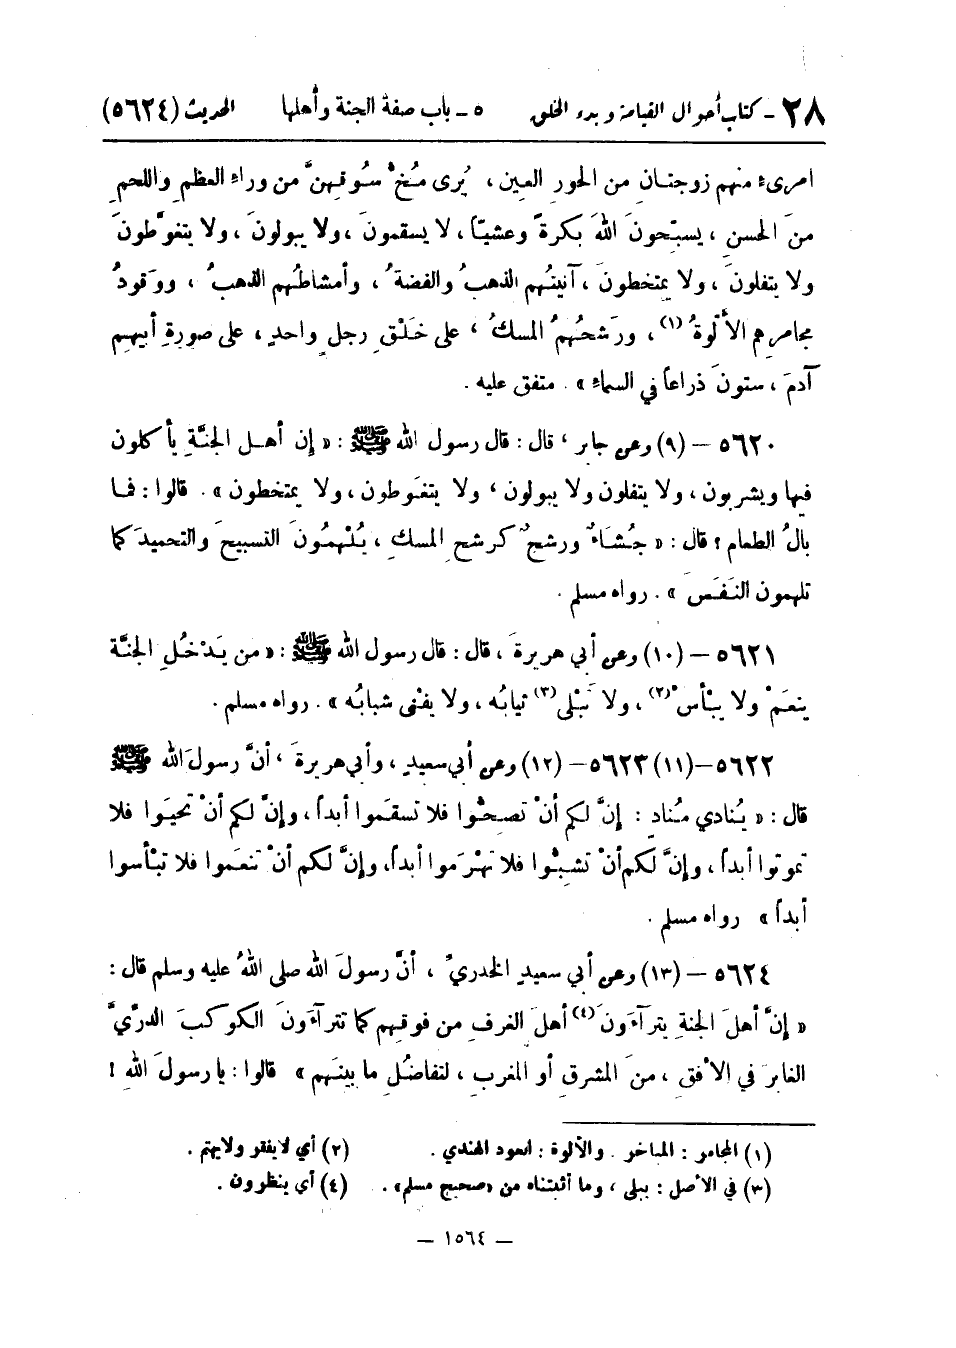 ٢٨ - كتاب أحوال القيامة وبدء الخلق ٥ - باب صفة الجنة وأهلها الحديث (٥٦٢٤)
امرىء منهم زوجتان من الحورِ العين ، يُرى مُخُّ سُوقهنَّ من وراءِ العظمِ واللحمِ
منَ الحسنِ ، يسبّحونَ اللهَ بكرةً وعشيّاً ، لا يسقمونَ ، ولا يبولونَ ، ولا يتغوَّطونَ
ولا يتفلونَ ، ولا يمتخطونَ ، آنيتُهم الذهبُ والفضةُ ، وأمشاطُهم الذهبُ ، ووَقودُ
مجامرِهم الأَلُوَّةُ (١) ، ورَشحُهُمُ المسكُ ، على خَلْقِ رجلٍ واحدٍ ، على صورةِ أبيهِم
آدمَ ، ستونَ ذراعاً في السماءِ » . متفق عليه .
٥٦٢٠ – (٩) وعن جابر ، قال : قال رسول الله ﷺ : « إن أهل الجنَّةِ يأكلون
فيها ويشربون ، ولا يتفلون ولا يبولون ، ولا يتغَوطون ، ولا يمتخطون » . قالوا : فما
بالُ الطعام ؟ قال : « جُشَاءٌ ورشحٌ كرشحِ المسكِ ، يُلْهَمُونَ التسبيحَ والتحميدَ كما
تلهمون النَفَسَ » . رواه مسلم .
٥٦٢١ – (١٠) وعن أبي هريرةَ ، قال : قال رسول الله ﷺ : « من يَدْخُلِ الجنَّةَ
ينعَمْ ولا يبْأسْ (٢) ، ولا تَبْلى (٣) ثيابُه ، ولا يفْنى شبابُه » . رواه مسلم .
٥٦٢٢ – (١١) ٥٦٢٣ – (١٢) وعن أبي سعيدٍ ، وأبي هريرةَ ، أنَّ رسولَ الله ﷺ
قال : « يُنادي مُنادٍ : إنَّ لكم أنْ تصِحُّوا فلا تسقَموا أبداً ، وإنَّ لكم أنْ تحيَوا فلا
تموتوا أبداً ، وإنَّ لكم أنْ تشِبُّوا فلا تهْرَموا أبداً ، وإنَّ لكم أنْ تنعَموا فلا تبْأسوا
أبداً » رواه مسلم .
٥٦٢٤ – (١٣) وعن أبي سعيدٍ الخدريِّ ، أنَّ رسولَ الله صلى اللهُ عليه وسلم قال :
« إنَّ أهلَ الجنةِ يتراءَونَ (٤) أهلَ الغرفِ من فوقهم كما تتراءَونَ الكوكبَ الدرِّيَّ
الغابرَ في الأفقِ ، منَ المشرقِ أو المغربِ ، لتفاضُلِ ما بينَهم » قالوا : يا رسولَ اللهِ !
(١) المجامر : المباخر . والألوة : العود الهندي . (٢) أي لا يفقر ولا يهتم .
(٣) في الأصل : يبلى ، وما أثبتناه من «صحيح مسلم» . (٤) أي ينظرون .
– ١٥٦٤ –